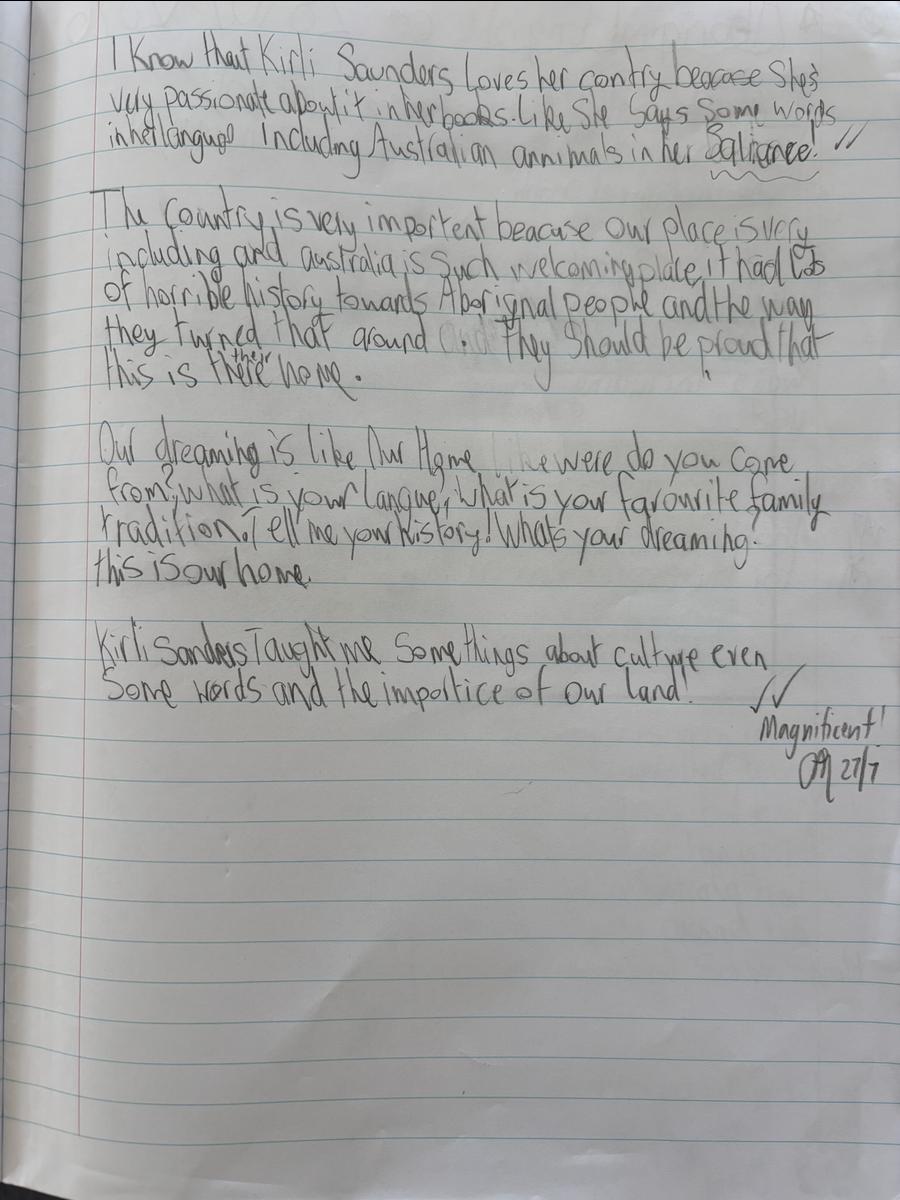 I Know that Kirli Saunders Loves her contry beacase She's
very passionate about it in her books. Like She Says Some words
in her languge Including Australian annimals in her
The Country, is very importent beacuse Our place is very
including and australia is Such welcoming place, it had lots
of horrible history towards Aborignal people and the way
they turned that around . They Should be proud that
this is there their home.
Our dreaming is like Our Home, like were do you come
from?, what is your langue, What is your favourite family
tradition. Tell me your history! What's your dreaming?
this is our home.
Kirli Sanders Taught me Some things about culture even
Some words and the importice of our land!
Magnificent!
27/7